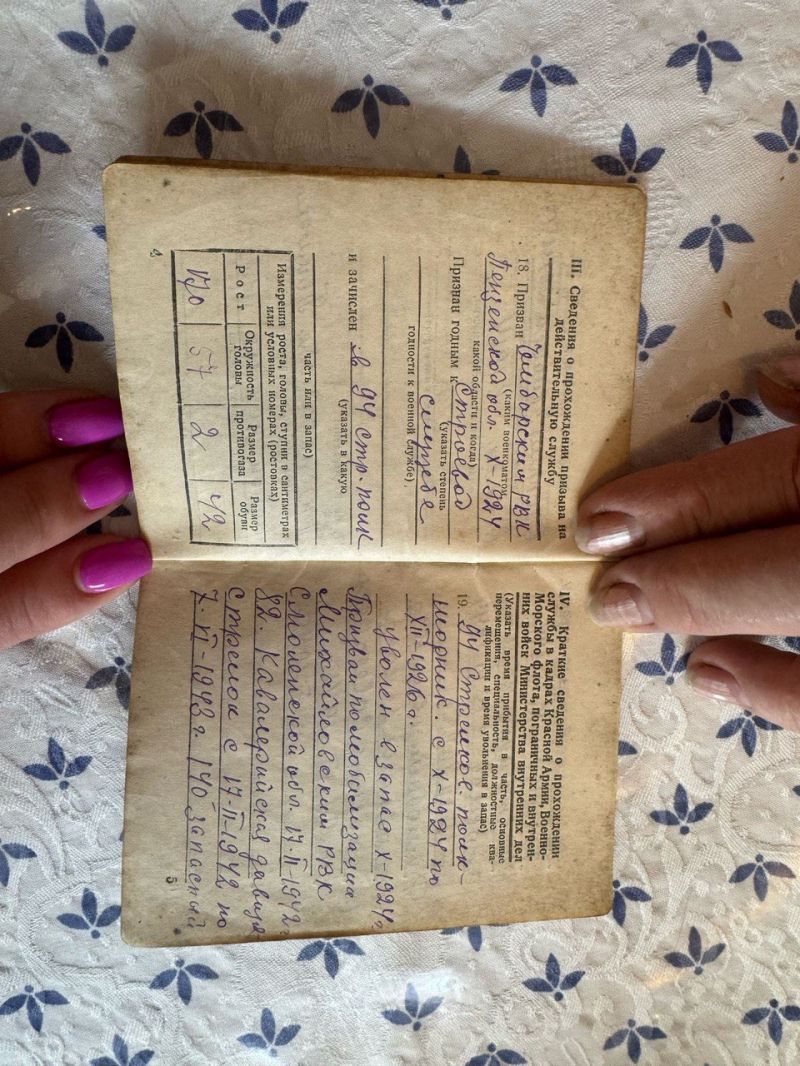 III. Сведения о прохождении призыва на
действительную службу
18. Призван Чембарским РВК
(каким военкоматом,
Пензенской обл. X-1924
какой области и когда)
Признан годным к строевой
(указать степень
службе
годности к военной службе).
и зачислен в 94 стр. полк
(указать в какую
часть или в запас)
Измерения роста, головы, ступни в сантиметрах
или условных номерах (ростовках)
Рост Окружность головы Размер противогаза Размер обуви
170 57 2 42
4
IV. Краткие сведения о прохождении
службы в кадрах Красной Армии, Военно-
Морского флота, пограничных и внутрен-
них войск Министерства внутренних дел
(Указать время прибытия в часть, основные
перемещения, специальность, должностные ква-
лификации и время увольнения в запас)
19. 94 Стрелков. полк-
с X-1924 по
XII-1926 г.
уволен в запас X-1924 г
Призван по мобилизации
Михайловским РВК
Смоленской обл. 17-II-1942 г
82. Кавалерийская дивизия
стрелок с 17-II-1942 по
7-VI-1943 г 140 запасный
5